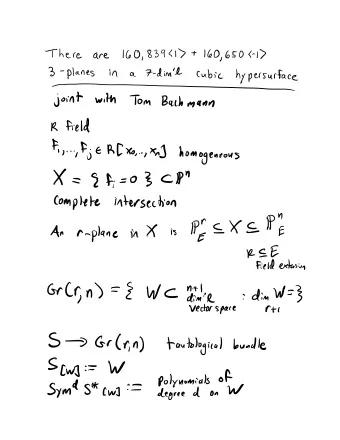 There are 160,839<1> + 160,650<-1>
3-planes in a 7-dim'l cubic hypersurface
joint with Tom Bachmann
k field
F_1,...,F_j ∈ k[x_0,..,x_n] homogeneous
X = { F_i = 0 } ⊂ P^n
Complete intersection
An r-plane in X is P^r_E ⊆ X ⊆ P^n_E
k ⊆ E
Field extension
Gr(r,n) = { W ⊂ n+1 dim'l vector space : dim W = r+1 }
S → Gr(r,n) tautological bundle
S_[W] := W
Sym^d S*_[W] := Polynomials of degree d on W